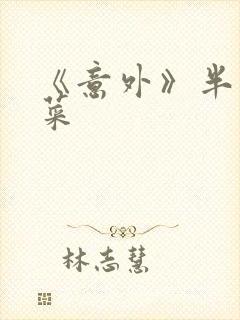 《意外》半
菜
林志慧